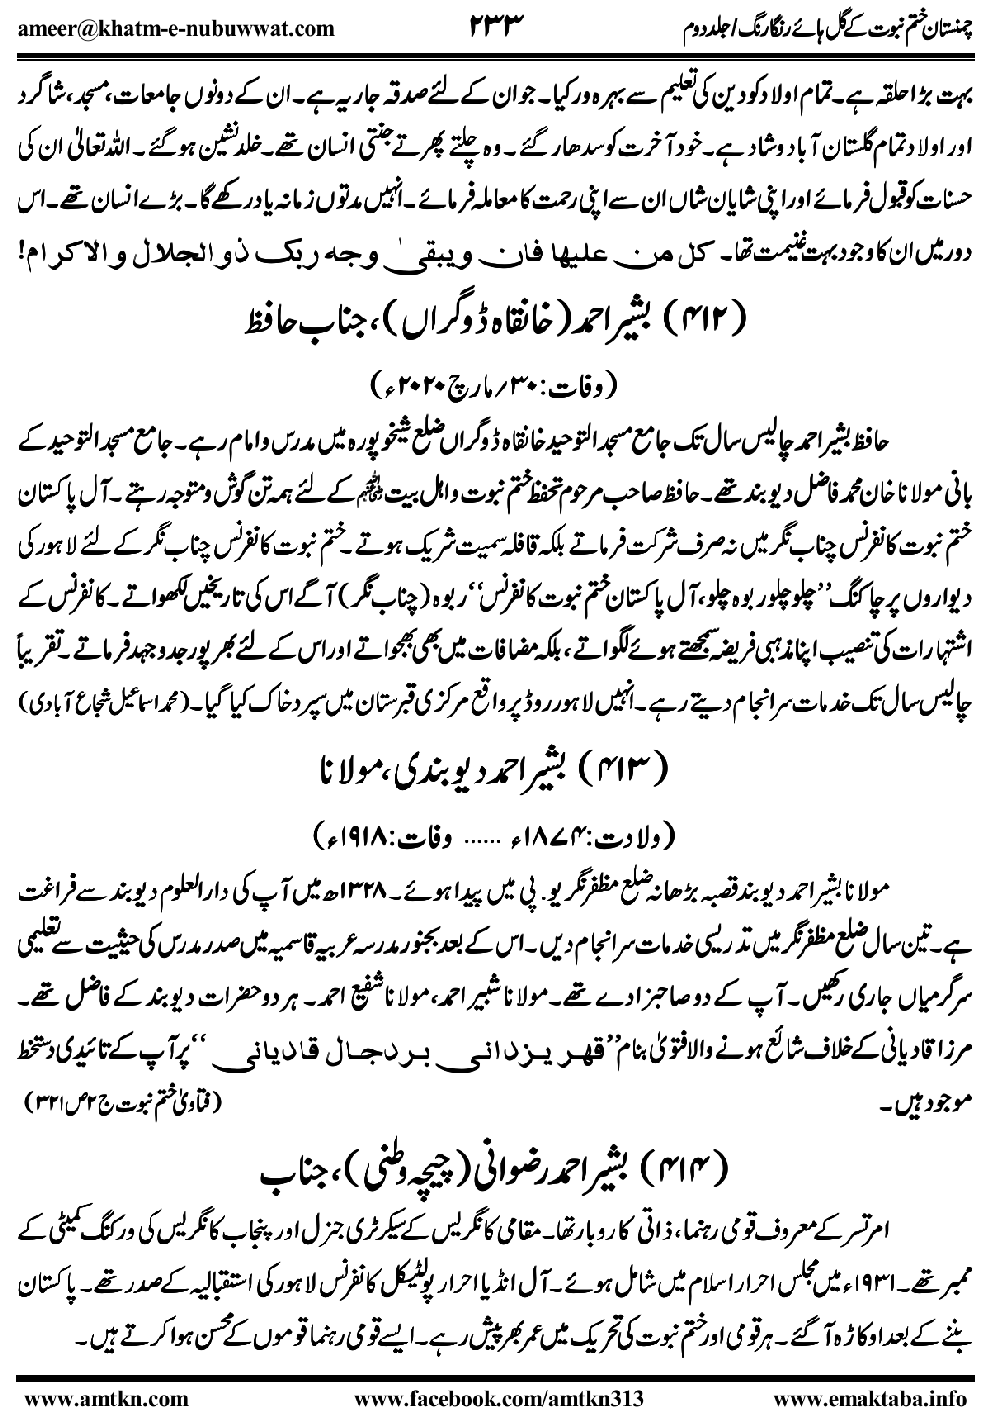 ameer@khatm-e-nubuwwat.com ۲۳۳ چمنستان ختم نبوت کے گل ہائے رنگا رنگ / جلد دوم
بہت بڑا حلقہ ہے۔ تمام اولاد کو دین کی تعلیم سے بہرہ ور کیا۔ جو ان کے لئے صدقہ جاریہ ہے۔ ان کے دونوں جامعات، مسجد، شاگرد
اور اولاد تمام گلستان آباد و شاد ہے۔ خود آخرت کو سدھار گئے۔ وہ چلتے پھرتے جنتی انسان تھے۔ خلد نشین ہوگئے۔ اللہ تعالیٰ ان کی
حسنات کو قبول فرمائے اور اپنی شایان شاں ان سے اپنی رحمت کا معاملہ فرمائے۔ انہیں مدتوں زمانہ یاد رکھے گا۔ بڑے انسان تھے۔ اس
دور میں ان کا وجود بہت غنیمت تھا۔ کل من علیها فان ویبقیٰ وجه ربک ذوالجلال والاکرام!
(۴۱۲) بشیر احمد (خانقاہ ڈوگراں)، جناب حافظ
(وفات: ۳۰؍مارچ ۲۰۲۰ء)
حافظ بشیر احمد چالیس سال تک جامع مسجد التوحید خانقاہ ڈوگراں ضلع شیخوپورہ میں مدرس و امام رہے۔ جامع مسجد التوحید کے
بانی مولانا خان محمد فاضل دیوبند تھے۔ حافظ صاحب مرحوم تحفظ ختم نبوت و اہل بیتؓ کے لئے ہمہ تن گوش و متوجہ رہتے۔ آل پاکستان
ختم نبوت کانفرنس چناب نگر میں نہ صرف شرکت فرماتے بلکہ قافلہ سمیت شریک ہوتے۔ ختم نبوت کانفرنس چناب نگر کے لئے لاہور کی
دیواروں پر چاکنگ ’’چلو چلو ربوہ چلو، آل پاکستان ختم نبوت کانفرنس‘‘ ربوہ (چناب نگر) آگے اس کی تاریخیں لکھواتے۔ کانفرنس کے
اشتہارات کی تنصیب اپنا مذہبی فریضہ سمجھتے ہوئے لگواتے، بلکہ مضافات میں بھی بھجواتے اور اس کے لئے بھرپور جدوجہد فرماتے۔ تقریباً
چالیس سال تک خدمات سرانجام دیتے رہے۔ انہیں لاہور روڈ پر واقع مرکزی قبرستان میں سپرد خاک کیا گیا۔ (محمد اسماعیل شجاع آبادی)
(۴۱۳) بشیر احمد دیوبندی، مولانا
(ولادت: ۱۸۷۴ء ...... وفات: ۱۹۱۸ء)
مولانا بشیر احمد دیوبند قصبہ بڑھانہ ضلع مظفر نگر یو. پی میں پیدا ہوئے۔ ۱۳۲۸ھ میں آپ کی دارالعلوم دیوبند سے فراغت
ہے۔ تین سال ضلع مظفر نگر میں تدریسی خدمات سرانجام دیں۔ اس کے بعد بجنور مدرسہ عربیہ قاسمیہ میں صدر مدرس کی حیثیت سے تعلیمی
سرگرمیاں جاری رکھیں۔ آپ کے دو صاحبزادے تھے۔ مولانا شبیر احمد، مولانا شفیع احمد۔ ہر دو حضرات دیوبند کے فاضل تھے۔
مرزا قادیانی کے خلاف شائع ہونے والا فتویٰ بنام ’’قهر یزدانی بر دجال قادیانی‘‘ پر آپ کے تائیدی دستخط
موجود ہیں۔ (فتاویٰ ختم نبوت ج۲ ص۳۲۱)
(۴۱۴) بشیر احمد رضوانی (چیچہ وطنی)، جناب
امرتسر کے معروف قومی رہنما، ذاتی کاروبار تھا۔ مقامی کانگریس کے سیکرٹری جنرل اور پنجاب کانگریس کی ورکنگ کمیٹی کے
ممبر تھے۔ ۱۹۳۱ء میں مجلس احرار اسلام میں شامل ہوئے۔ آل انڈیا احرار پولٹیکل کانفرنس لاہور کی استقبالیہ کے صدر تھے۔ پاکستان
بننے کے بعد اوکاڑہ آگئے۔ ہر قومی اور ختم نبوت کی تحریک میں عمر بھر پیش رہے۔ ایسے قومی رہنما قوموں کے محسن ہوا کرتے ہیں۔
www.amtkn.com www.facebook.com/amtkn313 www.emaktaba.info